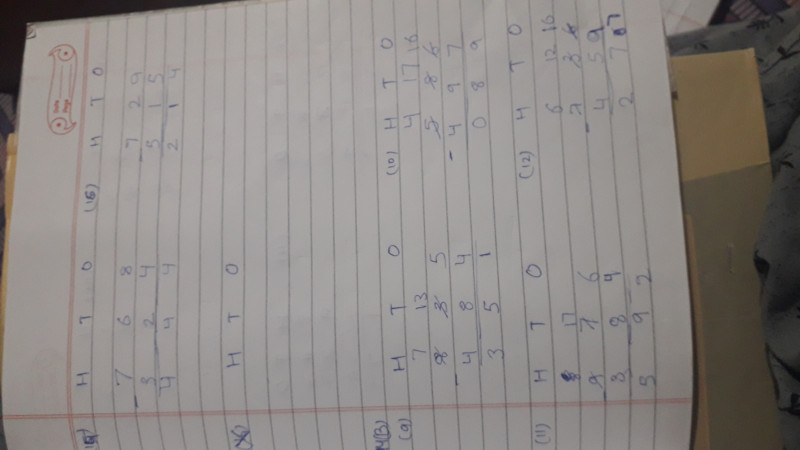 Date
Page
(14) H T O (15) H T O
7 6 8 7 2 9
- 3 2 4 - 5 1 5
4 4 4 2 1 4
H T O
4(B)
(9) H T O (10) H T O
7 13 4 17 16
8 3 5 5 8 6
- 4 8 4 - 4 9 7
3 5 1 0 8 9
(11) H T O (12) H T O
8 17 6 12 16
9 7 6 7 3 6
- 3 8 4 - 4 5 9
5 9 2 2 7 7